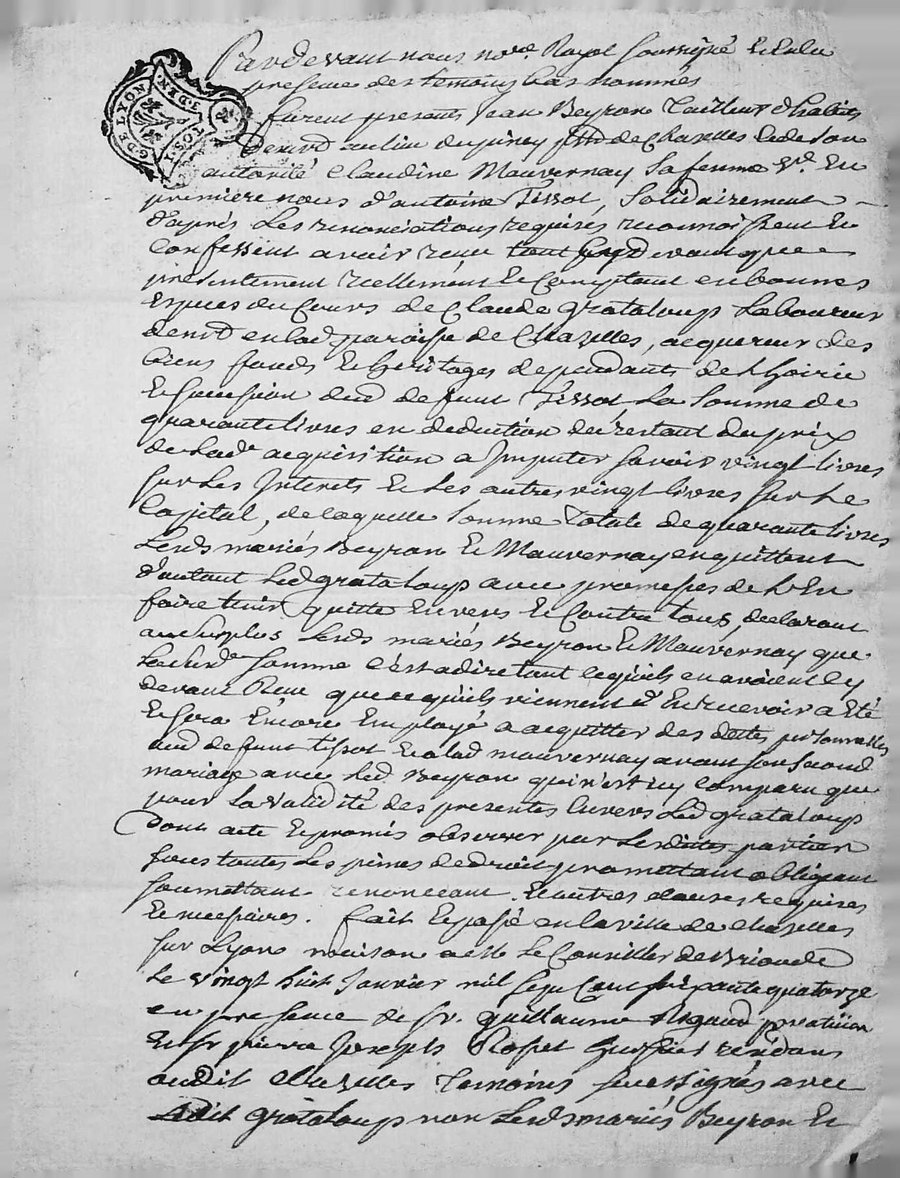 Pardevant nous nore. Royal soussigné et en la
presence des temoins bas nommés
G DE LYON GEN. DE TOS.
furent presents Jean Beyron Tailleur d'habits
demt. au lieu du piney psse de Chazelles et de son
autorité Claudine Mauvernay sa femme Ve. en
première noces d'antoine Tissot, solidairement
d'après les renonciations requises reconnoissent et
confessent avoir recu tout cy devant que
présentement reellement et comptant en bonnes
especes du cours de Claude grataloup Laboureur
demt en lad paroisse de Chazelles, acquereur des
biens fonds et héritages dependants de l'hoirie
et succession dud defunt Tissot la somme de
quarante livres en deduction du restant du prix
de lade acquisition a imputer savoir vingt livres
sur les Interets et les autres vingt livres sur le
Capital, de laquelle somme totale de quarante livres
lesds mariés Beyron et Mauvernay en quittent
d'autant led grataloup avec promesses de l'en
faire tenir quitte envers et contre tous, declarant
au surplus lesds mariés Beyron et Mauvernay que
somme c'est a dire tant ce qu'ils en avoient cy
devant Reçu que ce qu'ils viennent d'En recevoir a Eté
et sera Encore Employé a acquitter des dettes personnelles
dud defunt tissot et a lad mauvernay avant son second
mariage avec led. Beyron qui n'est icy comparu que
pour la validité des presentes envers led grataloup
Dont acte et promis observer par lesdittes parties
sous toutes les peines de droit promettant obligeant
soumettant renonceant et autres clauses requises
et necessaires. fait et passé en la ville de chazelles
sur Lyon maison de Brioude
le vingt huit Janvier mil sept Cent soixante quatorze
en presence de sr. guillaume Rigaud praticien
et sr pierre Joseph Rosset Greffier résidans
audit Chazelles Temoins soussignés avec
ledit grataloup non lesds mariés Beyron et